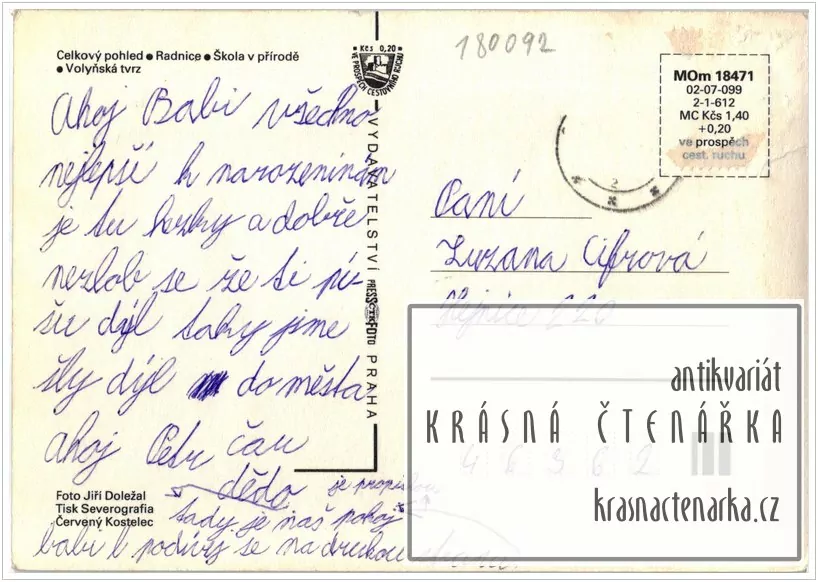 180092
Celkový pohled ● Radnice ● Škola v přírodě
● Volyňská tvrz
Kčs 0,20
VE PROSPĚCH CESTOVNÍHO RUCHU
MOm 18471
02-07-099
2-1-612
MC Kčs 1,40
+0,20
ve prospěch
cest. ruchu
Ahoj Babi všechno
nejlepší k narozeninam
je tu hezky a dobře
nezlob se že ti pí-
šu dýl taky jsme
šly dýl do města
ahoj Petr čau
dědo
tady je náš pokoj
babi podívej se na druhou
VYDAVATELSTVÍ PRESSFOTO PRAHA
Paní
Zuzana Cifrová
Hejnice 220
46362
Foto Jiří Doležal
Tisk Severografia
Červený Kostelec
antikvariát
KRÁSNÁ ČTENÁŘKA
krasnactenarka.cz